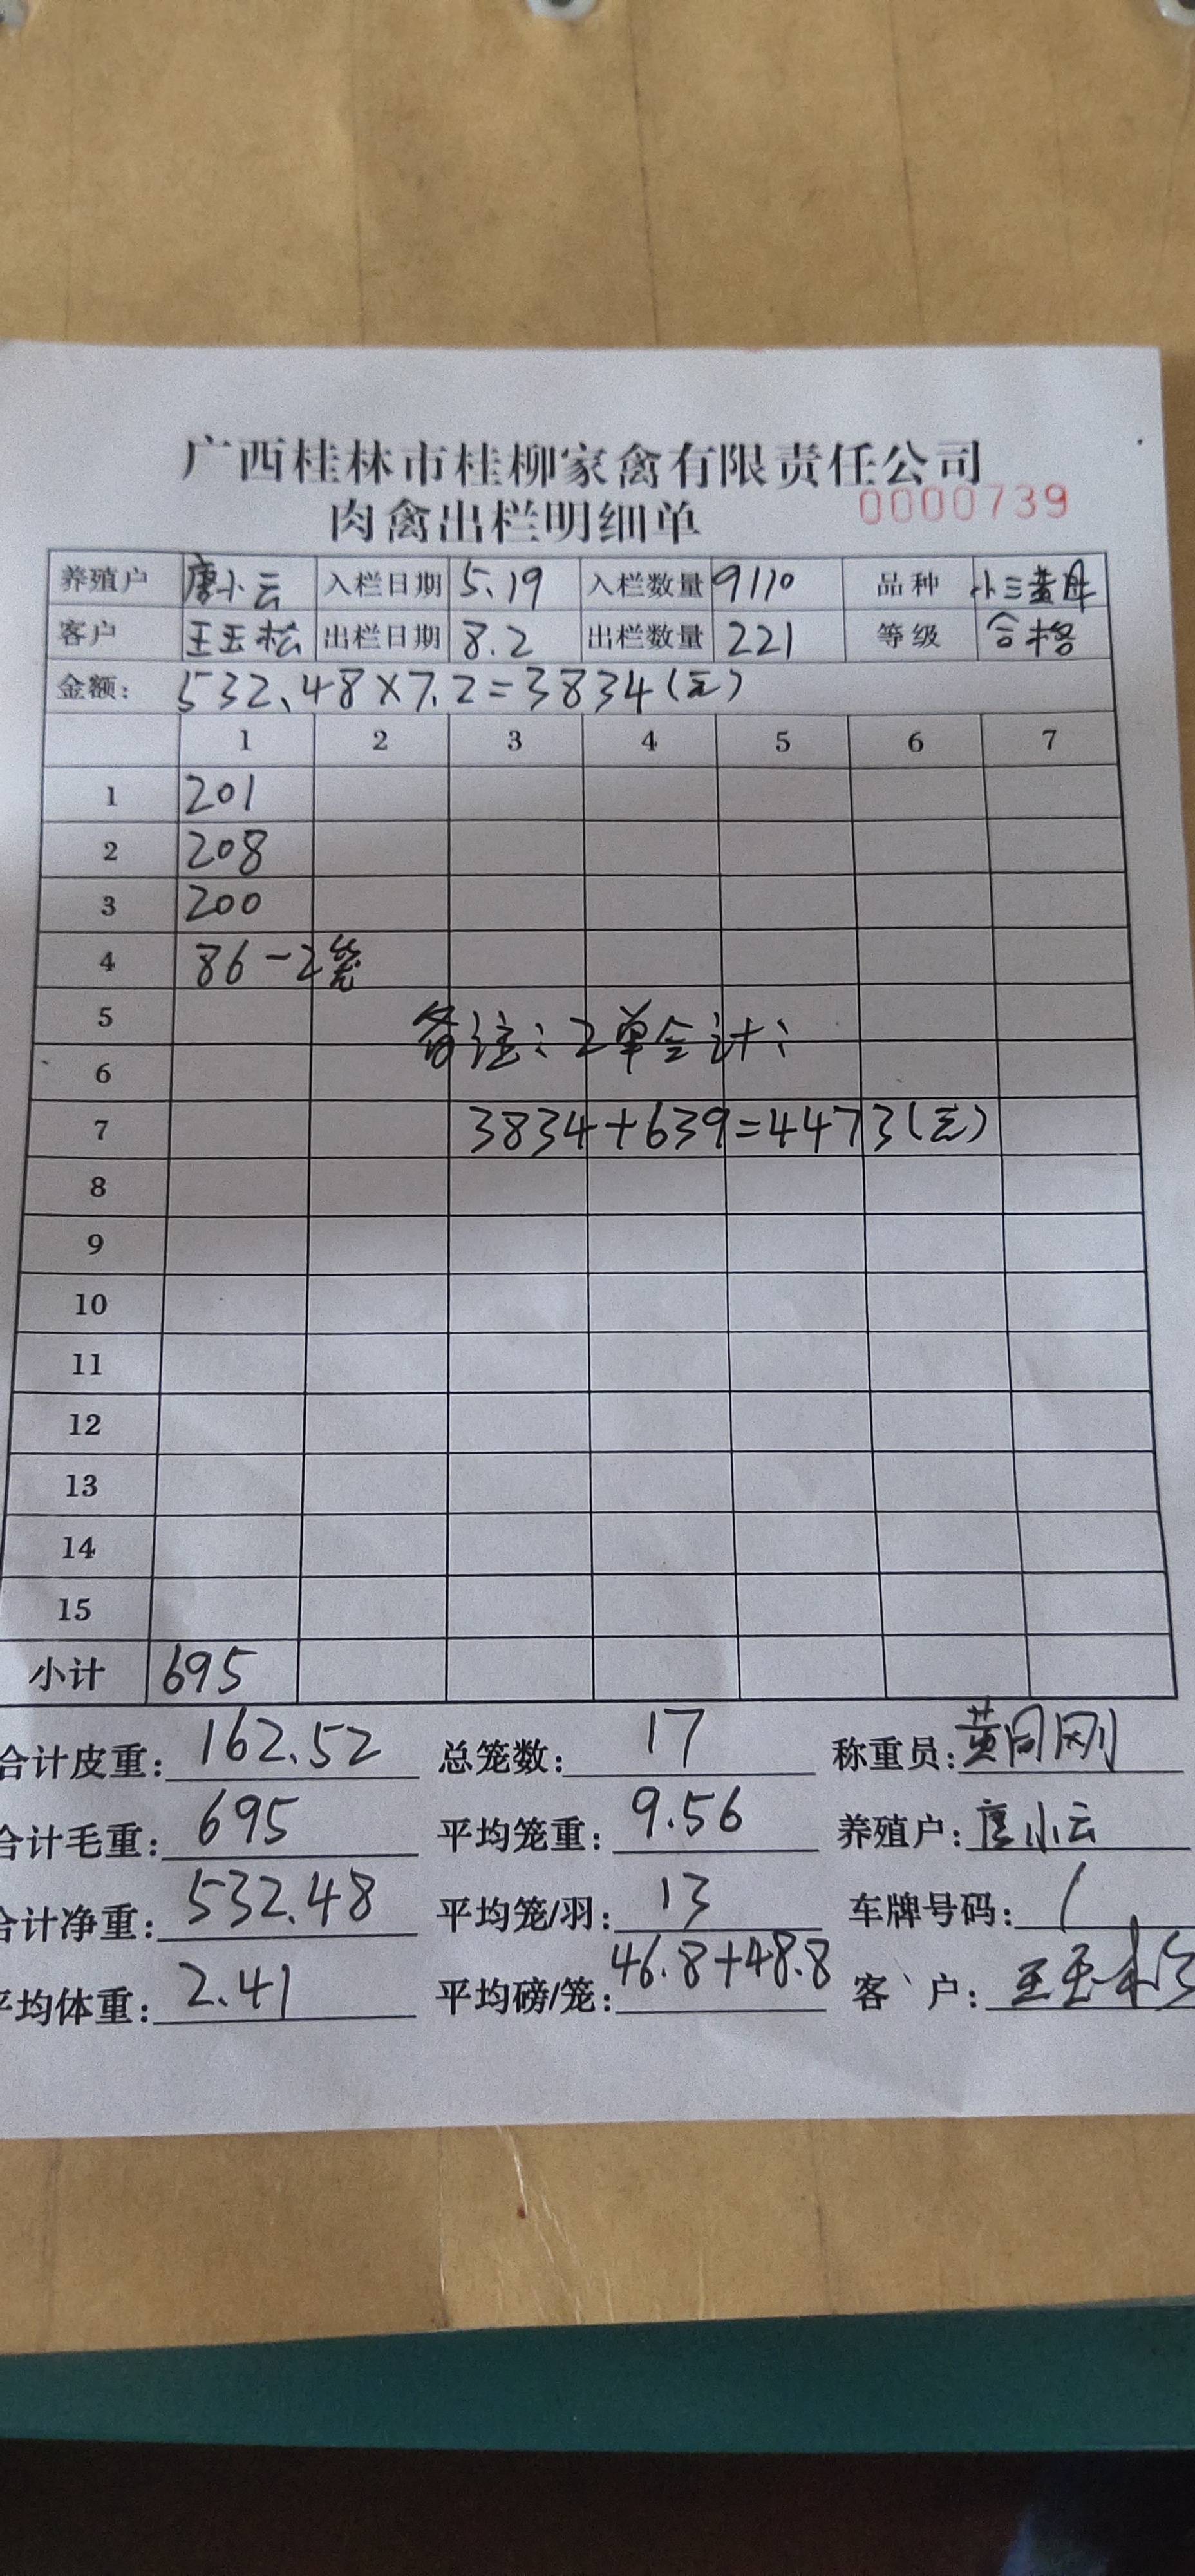 广西桂林市桂柳家禽有限责任公司
肉禽出栏明细单 0000739
养殖户 唐小云 入栏日期 5.19 入栏数量 9110 品种 小三黄
客户 王玉松 出栏日期 8.2 出栏数量 221 等级 合格
金额: 532.48×7.2=3834(元)
1 2 3 4 5 6 7
1 201
2 208
3 200
4 86-2笼
5 备注:2单合计:
6
7 3834+639=4473(元)
8
9
10
11
12
13
14
15
小计 695
合计皮重: 162.52 总笼数: 17 称重员: 黄同刚
合计毛重: 695 平均笼重: 9.56 养殖户: 唐小云
合计净重: 532.48 平均笼/羽: 13 车牌号码: /
平均体重: 2.41 平均磅/笼: 46.8+48.8 客户: 王玉松